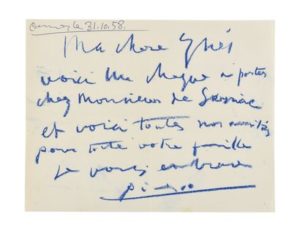 Cannes le 31.10.58.
Ma chere Ynés
voici un cheque a porter
chez Monsieur de
et voici toutes nos amitiés
pour toute votre famille
je vous embrasse
Picasso